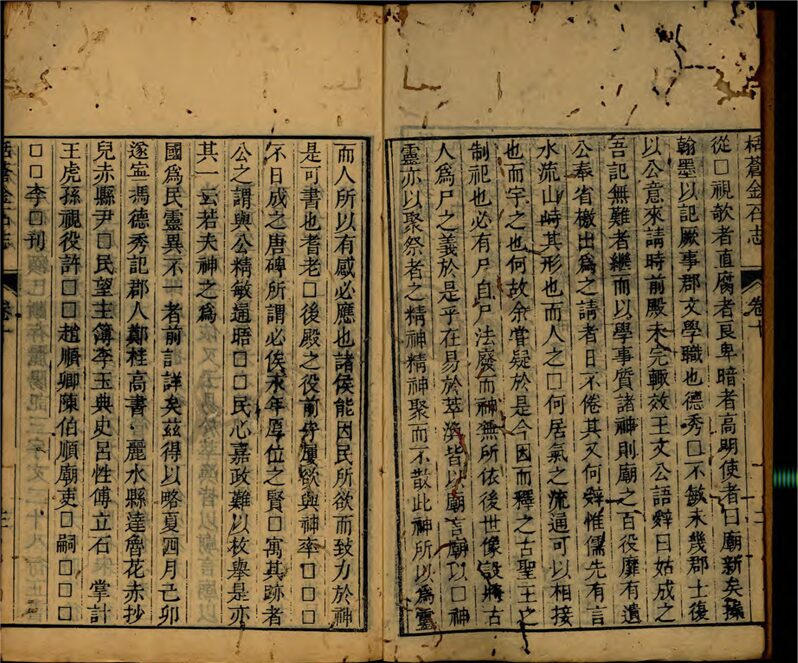 栝蒼金石志
卷十
從□視欹者直腐者艮卑暗者高明使者曰廟新矣豫
翰墨以記厥事郡文學職也德秀□不敏未幾郡士復
以公意來請時前殿未完輙效王文公語辤曰姑成之
吾記無難者繼而以學事質諸神則廟之百役靡有遺
公奉省檄出為之請者日不倦其又何辤惟儒先有言
水流山峙其形也而人之□何居氣之流通可以相接
也而字之也何故余甞疑於是今因而釋之古聖王之
制祀也必有尸自尸法廢而神無所依後世像設將古
人為尸之義於是乎在易於萃渙皆以廟言廟以□神
靈亦以聚祭者之精神精神聚而不散此神所以為靈
而人所以有感必應也諸侯能因民所欲而致力於神
是可書也耆老□後殿之役前守屢欲與神率□□□
不日成之唐碑所謂必俟永年厚位之賢□寓其跡者
公之謂與公精敏通晤□□民心嘉政難以枚舉是亦
其一云若夫神之為
國為民靈異不一者前記詳矣茲得以略夏四月己卯
遂寍馮德秀記郡人鄭桂高書·麗水縣達魯花赤抄
兒赤縣尹□民望主簿李玉典史呂性傅立石 掌計
王虎孫視役許□□趙順卿陳伯順廟吏□嗣□□□
□□李□刊
栝蒼金石志
卷十